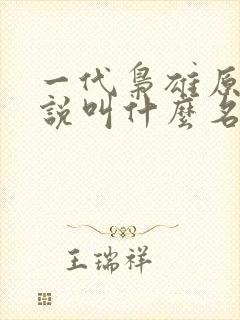 一代梟雄原
說叫什麼名
王瑞祥